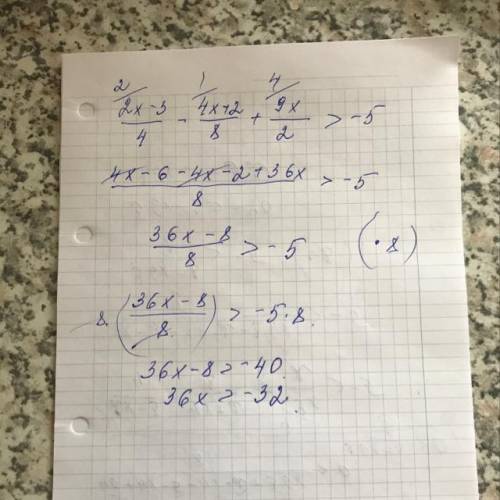 2/ 1/ 4/
(2x-3)/4 - (4x+2)/8 + 9x/2 > -5
(4x-6-4x-2+36x)/8 > -5
(36x-8)/8 > -5 (·8)
8·((36x-8)/8) > -5·8
36x-8 > -40
36x > -32